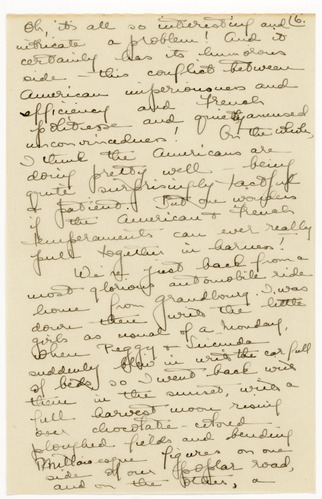 Oh, it's all so interesting and 6.
intricate a problem! And it
certainly has its humorous
side – this conflict between
American imperiousness and
efficiency and French
politesse and quietly amused
unconvincedness! On the whole,
I think the Americans are
doing pretty well – being
quite surprisingly tactful
& patient. But one wonders
if the American & French
temperaments can ever really
pull together in harness!
We're just back from a
most glorious automobile ride
home from Grandbourg. I was
down there with the little
girls as usual of a Monday,
when Peggy & Lucinda
suddenly blew in with the car full
of beds, so I went back with
them in the sunset, with a
full harvest moon rising
over chocolate-colored
ploughed fields and bending
Millet-esque figures on one
side of our poplar road,
and on the other, a